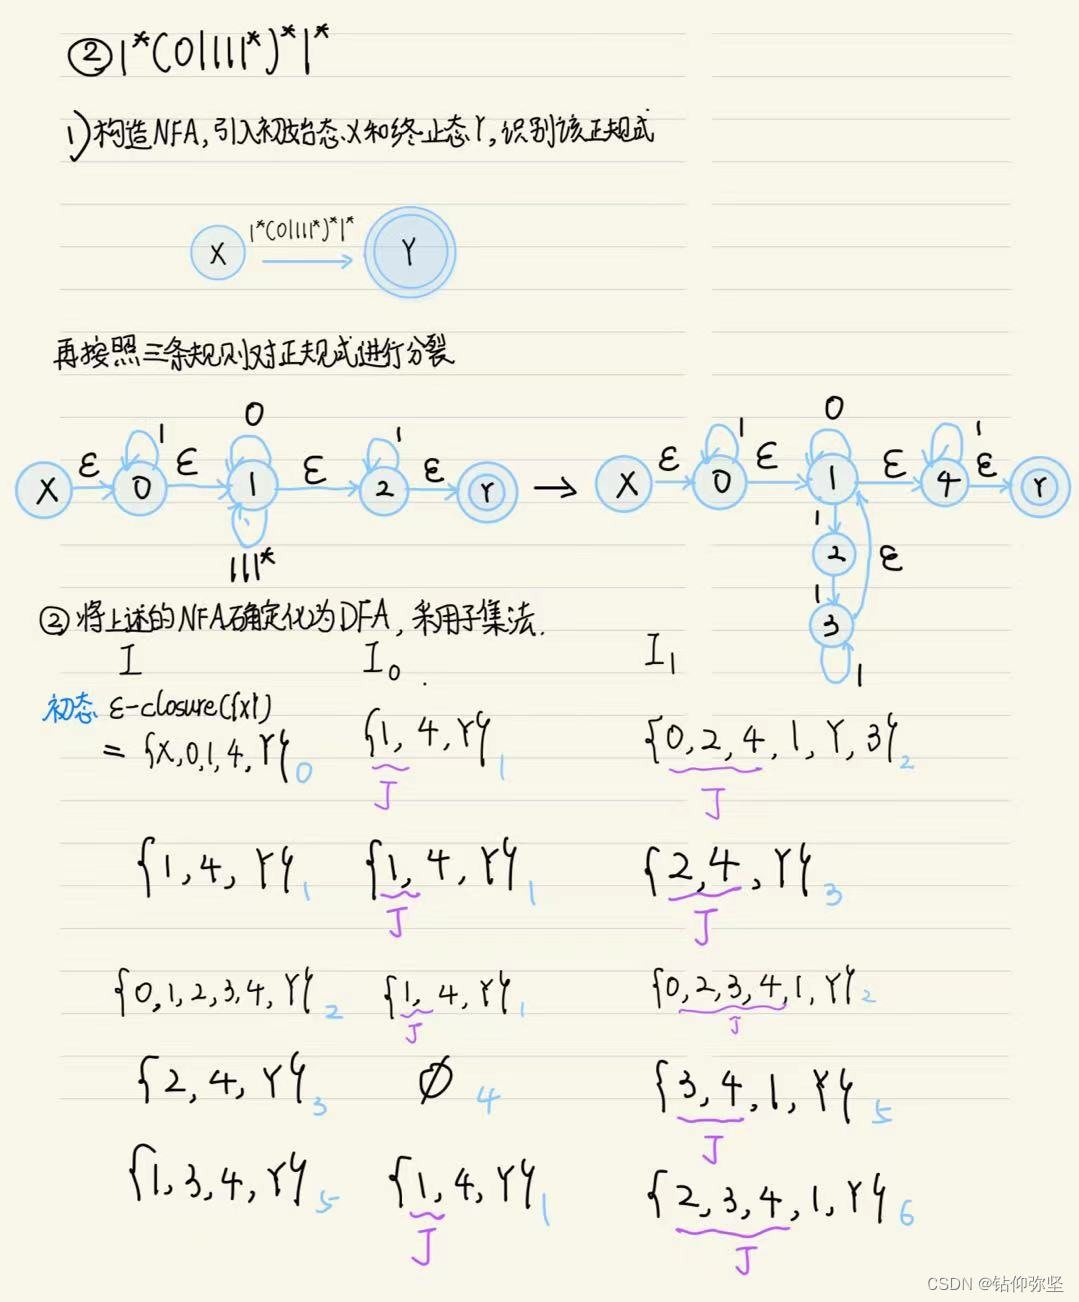 ② 1*(0|111*)*1*
1) 构造NFA,引入初始态X和终止态Y,识别该正规式
X 1*(0|111*)*1* Y
再按照三条规则对正规式进行分裂
0 0
X ε 0 1 ε 1 ε 2 1 ε Y → X ε 0 1 ε 1 ε 4 1 ε Y
111* 1 2 ε
② 将上述的NFA确定化为DFA,采用子集法. 1 3
I I₀ I₁ 1
初态 ε-closure({X})
= {X,0,1,4,Y} 0 {1,4,Y} 1 {0,2,4,1,Y,3} 2
J J
{1,4,Y} 1 {1,4,Y} 1 {2,4,Y} 3
J J
{0,1,2,3,4,Y} 2 {1,4,Y} 1 {0,2,3,4,1,Y} 2
J J
{2,4,Y} 3 ∅ 4 {3,4,1,Y} 5
J
{1,3,4,Y} 5 {1,4,Y} 1 {2,3,4,1,Y} 6
J J
CSDN @钻仰弥坚